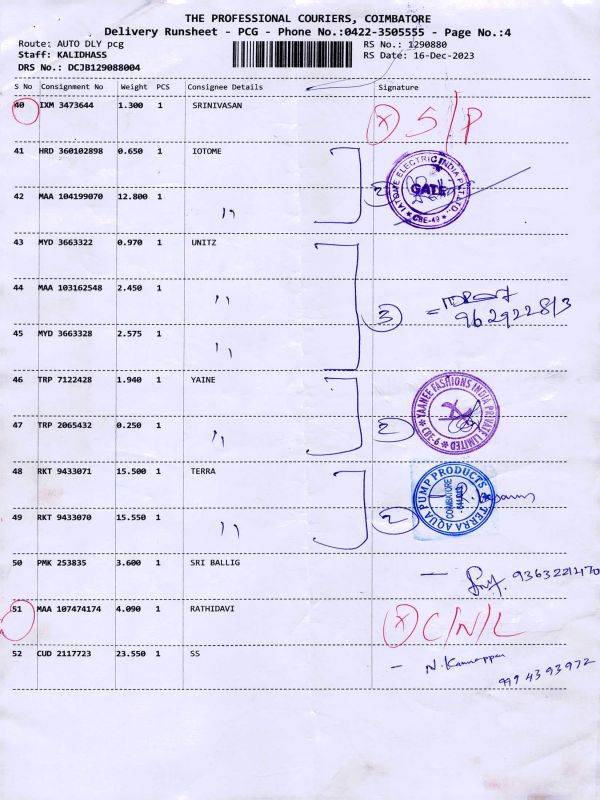 THE PROFESSIONAL COURIERS, COIMBATORE
Delivery Runsheet - PCG - Phone No.:0422-3505555 - Page No.:4
Route: AUTO DLY pcg RS No.: 1290880
Staff: KALIDHASS RS Date: 16-Dec-2023
DRS No.: DCJB129088004
S No Consignment No Weight PCS Consignee Details Signature
40 IXM 3473644 1.300 1 SRINIVASAN
X S/P
41 HRD 360102898 0.650 1 IOTOME
2 GATE
CBE-49
42 MAA 104199070 12.800 1 "
43 MYD 3663322 0.970 1 UNITZ
44 MAA 103162548 2.450 1 "
3 = 962922813
45 MYD 3663328 2.575 1 "
46 TRP 7122428 1.940 1 YAINE
YAANEE FASHIONS INDIA PRIVATE LIMITED
47 TRP 2065432 0.250 1 "
2
48 RKT 9433071 15.500 1 TERRA
TERRA AQUA PUMP PRODUCTS
COIMBATORE
49 RKT 9433070 15.550 1 "
2
50 PMK 253835 3.600 1 SRI BALLIG
51 MAA 107474174 4.090 1 RATHIDAVI
X C/N/L
52 CUD 2117723 23.550 1 SS
- N. Kannappan
9994393972